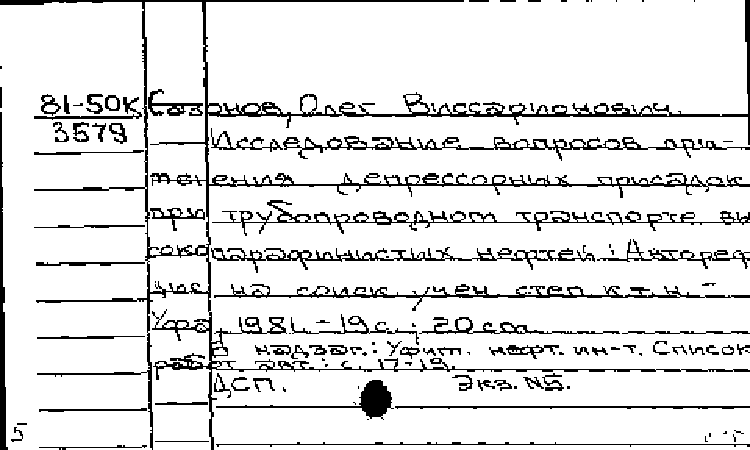 81-50К Сазонов, Олег Виссарионович.
3579 Исследование вопросов при-
менения депрессорных присадок
при трубопроводном транспорте вы
сокопарафинистых нефтей: Автореф
дис на соиск учен степ к.т.н. -
Уфа, 1981. - 19 с.; 20 см.
В надзаг.: Уфим. нефт. ин-т. Список
работ авт.: с. 17-19.
ДСП. Экз. №5.
5